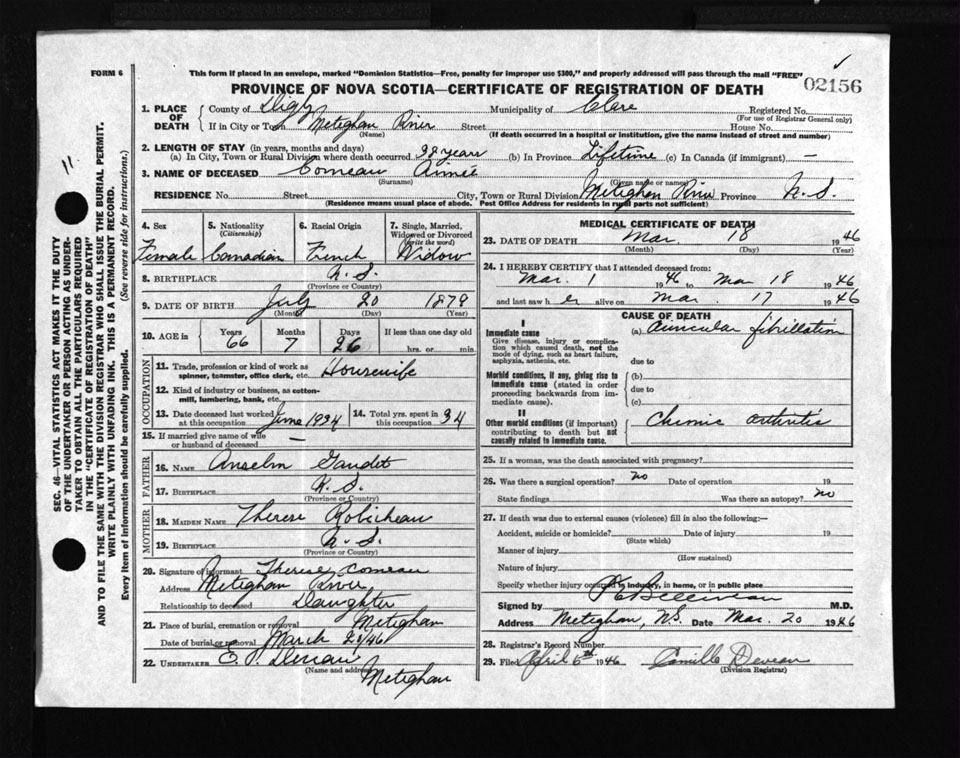 FORM 6
This form if placed in an envelope, marked "Dominion Statistics—Free, penalty for improper use $300," and properly addressed will pass through the mail "FREE"
PROVINCE OF NOVA SCOTIA—CERTIFICATE OF REGISTRATION OF DEATH
02156
11
SEC. 46—VITAL STATISTICS ACT MAKES IT THE DUTY
OF THE UNDERTAKER OR PERSON ACTING AS UNDER-
TAKER TO OBTAIN ALL THE PARTICULARS REQUIRED
IN THE "CERTIFICATE OF REGISTRATION OF DEATH"
AND TO FILE THE SAME WITH THE DIVISION REGISTRAR WHO SHALL ISSUE THE BURIAL PERMIT.
WRITE PLAINLY WITH UNFADING INK. THIS IS A PERMANENT RECORD.
Every item of information should be carefully supplied. (See reverse side for instructions.)
1. PLACE OF DEATH County of Digby Municipality of Clare Registered No.
(For use of Registrar General only)
If in City or Town Meteghan River Street House No.
(Name) (If death occurred in a hospital or institution, give the name instead of street and number)
2. LENGTH OF STAY (in years, months and days)
(a) In City, Town or Rural Division where death occurred years (b) In Province Lifetime (c) In Canada (if immigrant) —
3. NAME OF DECEASED Comeau Aimée
(Surname) (Given name or names)
RESIDENCE No. Street City, Town or Rural Division Meteghan River Province N.S.
(Residence means usual place of abode. Post Office Address for residents in rural parts not sufficient)
4. Sex Female
5. Nationality (Citizenship) Canadian
6. Racial Origin French
7. Single, Married, Widowed or Divorced (write the word) Widow
8. BIRTHPLACE N.S.
(Province or Country)
9. DATE OF BIRTH July 20 1879
(Month) (Day) (Year)
10. AGE in Years 66 Months 7 Days 26 If less than one day old hrs. or min.
OCCUPATION
11. Trade, profession or kind of work as spinner, teamster, office clerk, etc. Housewife
12. Kind of industry or business, as cotton-mill, lumbering, bank, etc.
13. Date deceased last worked at this occupation June 1934
14. Total yrs. spent in this occupation 34
15. If married give name of wife or husband of deceased —
FATHER
16. NAME Anselm Gaudet
17. BIRTHPLACE N.S.
(Province or Country)
MOTHER
18. MAIDEN NAME Therese Robicheau
19. BIRTHPLACE N.S.
(Province or Country)
20. Signature of informant Therese Comeau
Address Meteghan River
Relationship to deceased Daughter
21. Place of burial, cremation or removal Meteghan
Date of burial or removal March 20/46
22. UNDERTAKER E. P. Deveau
(Name and address) Meteghan
MEDICAL CERTIFICATE OF DEATH
23. DATE OF DEATH Mar 18 1946
(Month) (Day) (Year)
24. I HEREBY CERTIFY that I attended deceased from:
Mar. 1 1946 to Mar 18 1946
and last saw her alive on Mar. 17 1946
CAUSE OF DEATH
I
Immediate cause (a) Auricular fibrillation
Give disease, injury or complication which caused death, not the mode of dying, such as heart failure, asphyxia, asthenia, etc. due to
Morbid conditions, if any, giving rise to immediate cause (stated in order proceeding backwards from immediate cause). (b)
due to
(c)
II
Other morbid conditions (if important) contributing to death but not causally related to immediate cause. Chronic arthritis
25. If a woman, was the death associated with pregnancy?
26. Was there a surgical operation? no Date of operation 19
State findings Was there an autopsy? no
27. If death was due to external causes (violence) fill in also the following:—
Accident, suicide or homicide? Date of injury 19
(State which)
Manner of injury
(How sustained)
Nature of injury
Specify whether injury occurred in industry, in home, or in public place
Signed by Belliveau M.D.
Address Meteghan, N.S. Date Mar. 20 1946
28. Registrar's Record Number
29. Filed April 5th 1946 Camille Deveau
(Division Registrar)